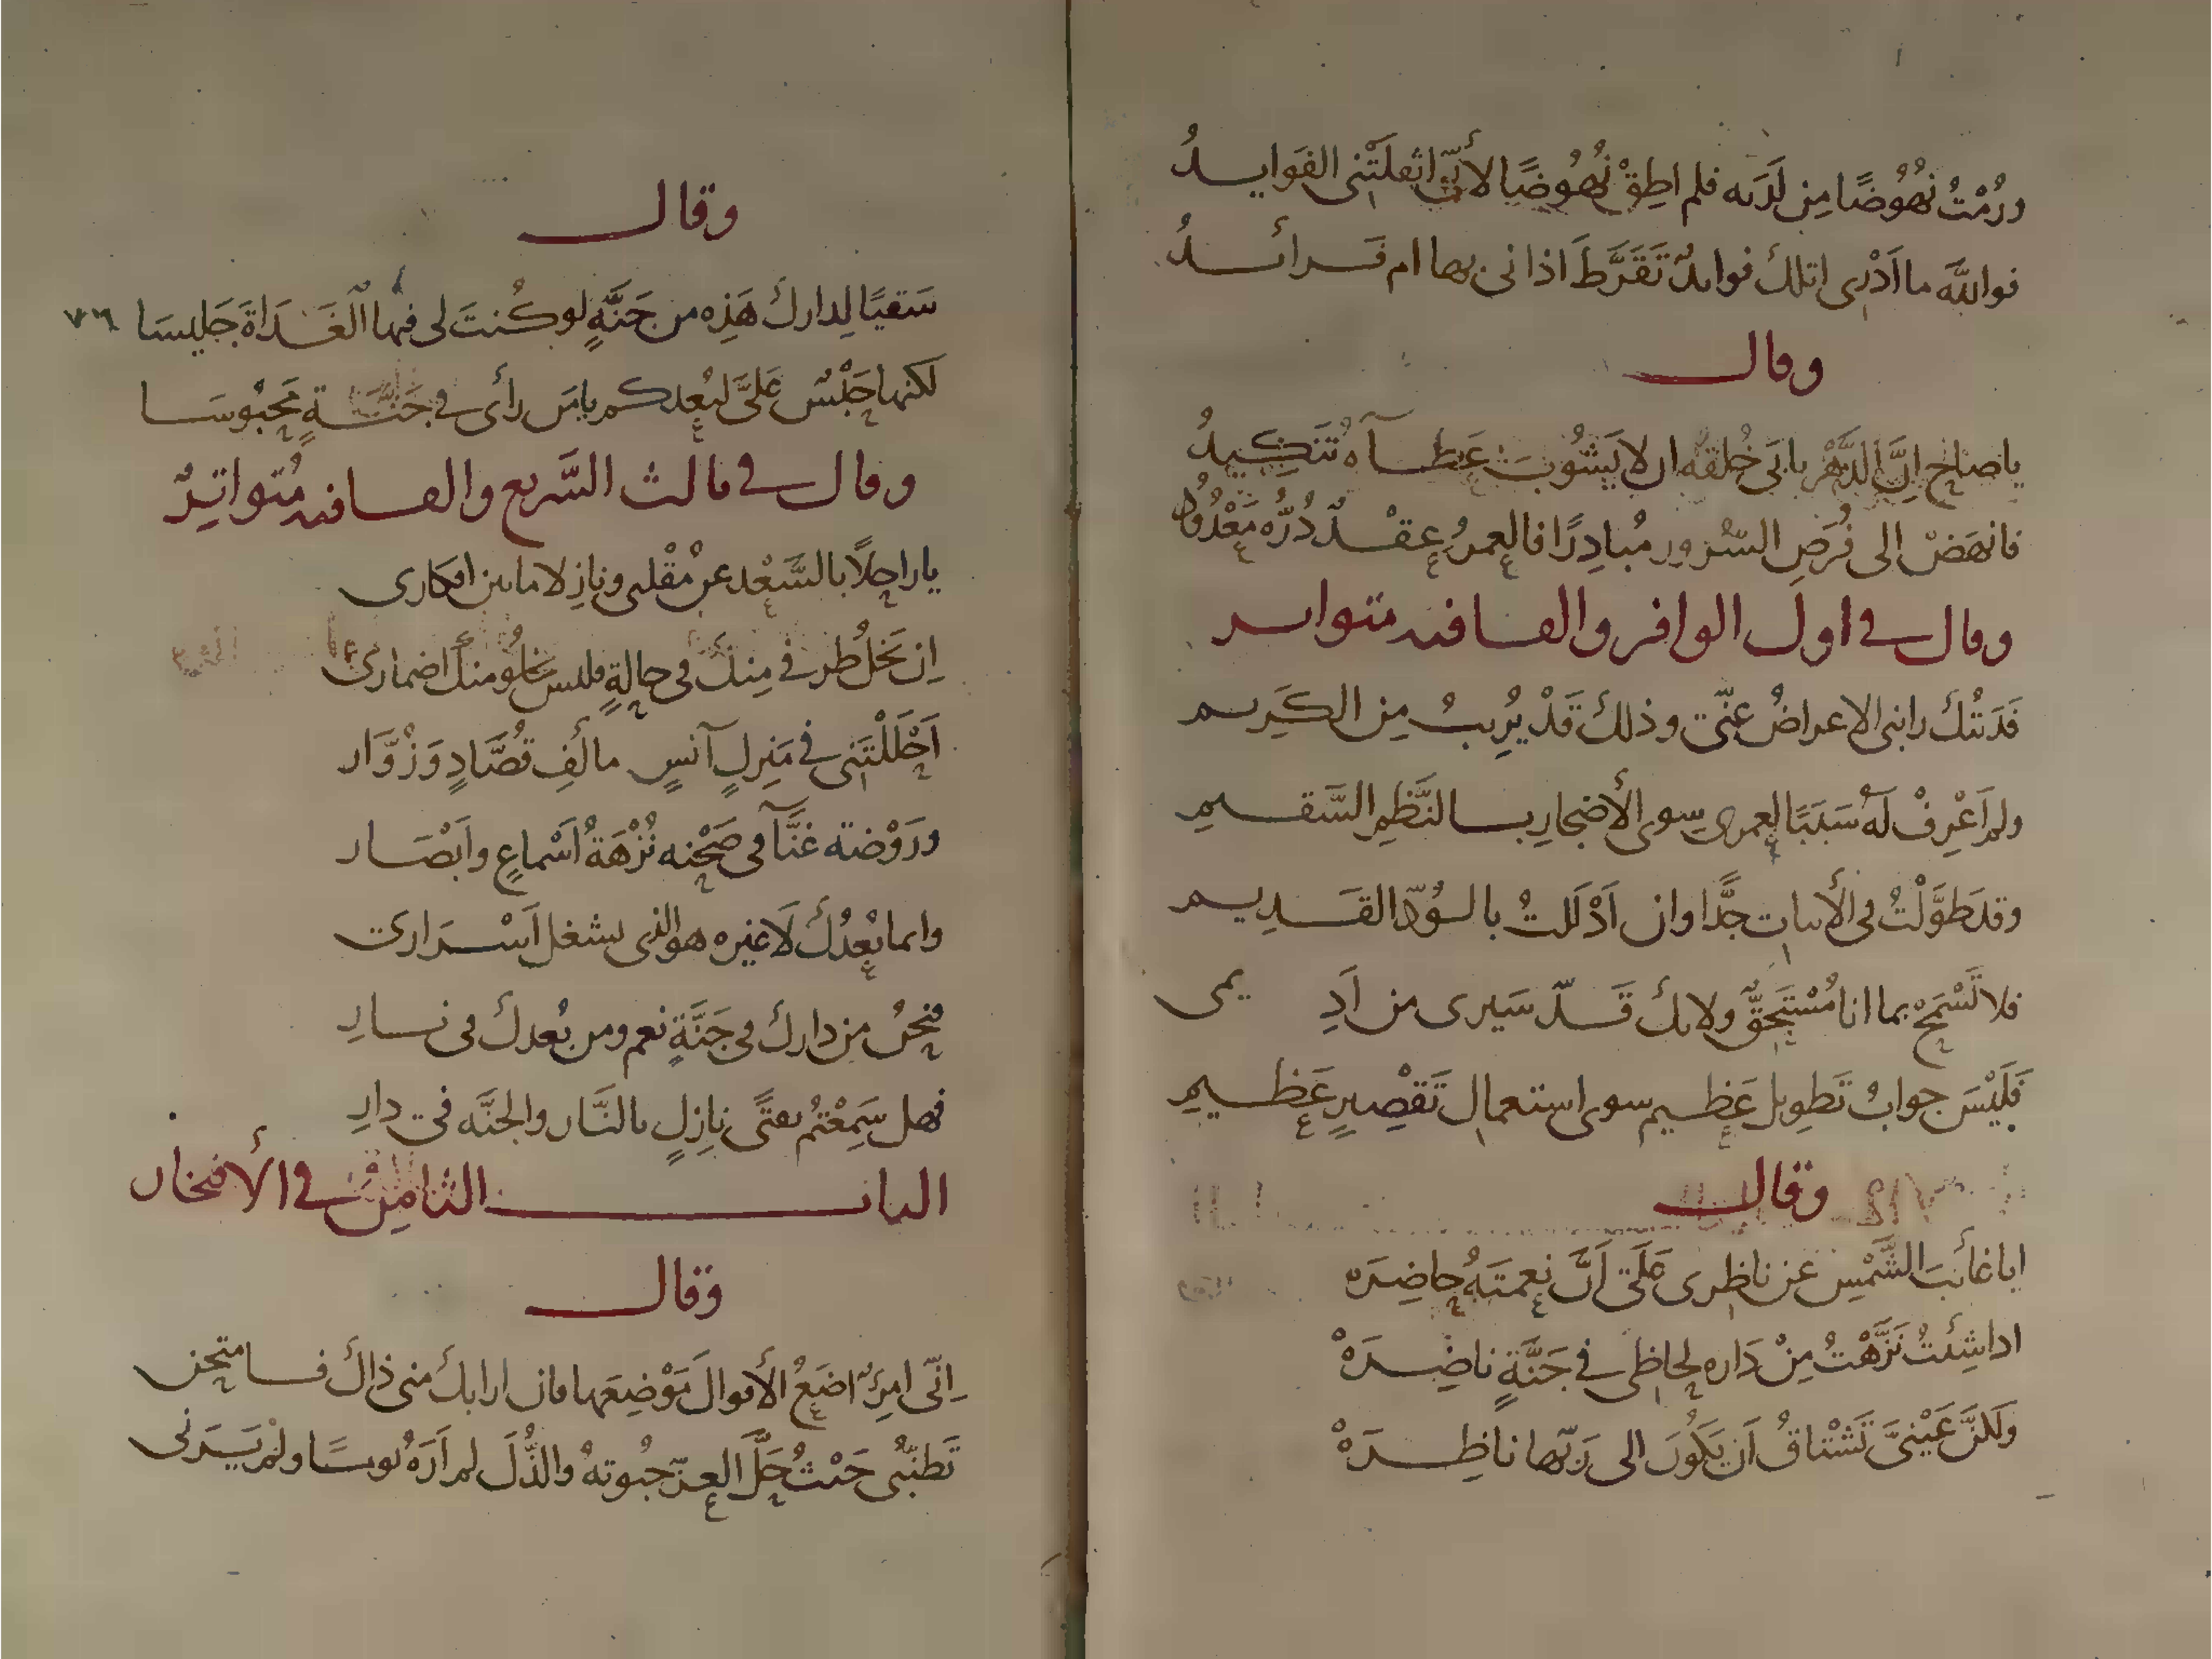 ورُمْتُ نُهُوُضًا مِن لَدَيه فلم اطِقْ نُهُوُضًا لأنّى اثقلَتْنى الفَوايدُ
فوالله ما اَدْرِى اتلك فوايدٌ تَقَرَّطَ اذانى بها ام فَرائدُ
وقال
ياصاحِ اِنَّ الدَّهْر يابَى خُلقه ان لا يَشُوبَ عَطآهُ تَنكِيدُ
فانهَضْ الى فُرَصِ السّرُورِ مُبادِرًا فالعمرُ عِقْدٌ دُرُّه مَعْدُودُ
وقال فى اول الوافر والقافيه متواتر
فَدَتْكَ رابنى الاعراضُ عنّى وذلك قَدْ يُرِيبُ مِن الكَرِيم
ولم اَعْرِفْ لَهُ سَبَبًا لعمرى سِوى الأضجارِ بالنَّظمِ السَّقيمِ
وقد طَوَّلْتُ فى الأبيات جدًّا وان اَدْلَلتُ بالوُدّ القَديم
فلا تَسْمَحْ بما انا مُسْتَحِقٌّ ولا بك قَدّ سَيرى من اَدِيمى
فَلَيْسَ جوابُ تَطويل عَظيم سوى استعمال تَقْصِيرٍ عَظيمِ
وقال
ايا غائبَ الشَّمْسِ عَن ناظرى عَلَى اَنَّ نِعمتَهُ حاضِرَه
اذا شِئتُ نَزَّهْتُ مِنْ دَاره لحاظى فى جَنَّةٍ ناضِرَهْ
ولَكنَّ عَيْنىَّ تَشْتاقُ اَن يَكُونَ الى رَبّها ناظِرَهْ
وقال
سَقيًا لِدارك هَذِه من جَنَّةٍ لو كُنتَ لى فيها الغَدَاةَ جَليسَا ٧٦
لكنها حَبْسٌ عَلىَّ لبُعدكم يا مَن رأى فى جَنَّةٍ مَحبُوسَا
وقال فى ثالث السَّريع والقافيه مُتواتِرٌ
يا راحِلاً بالسَّعْد عن مُقْلتى ونازِلا ما بين افكارى
اِن تَخلُ طرفى مِنك فى حالةٍ فليس يخلُو منك اضمارى
اَحْلَلْتَنى فى مَنزلٍ آنسٍ مألَفِ قُصَّادٍ وَزُوَّار
ورَوْضة غنَّآ فى صَحْنه نُزْهَةُ اَسْماعٍ واَبْصَار
وانما بُعدُكَ لَا غيره هو الذى يشغل اَسْرَارى
فنحنُ من دارك فى جَنَّةٍ نعم ومن بُعدك فى نارِ
فهل سَمِعْتُم بفتًى نازِلٍ بالنَّار والجنَّه فى دارِ
الباب الثامِن فى الأفتخار
وقال
اِنّى امرِئٌ اضَعُ الأموالَ مَوْضِعَها فان ارابك منى ذاك فامتحن
تَطنّبى حَيثُ حَلَّ العِزّ حبُوتهُ والذُّلَ لم اَرَهُ يومًا ولم يَرَنى